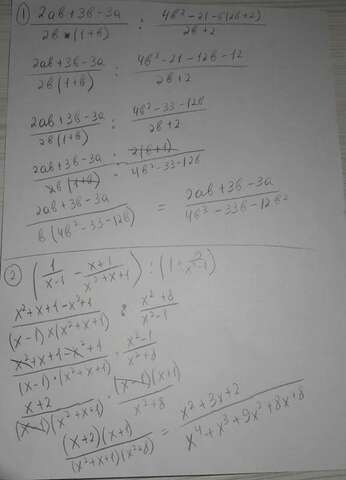 1) (2ab+3b-3a)/(2b·(1+b)) : (4b²-21-6(2b+2))/(2b+2)
(2ab+3b-3a)/(2b(1+b)) : (4b²-21-12b-12)/(2b+2)
(2ab+3b-3a)/(2b(1+b)) : (4b²-33-12b)/(2b+2)
(2ab+3b-3a)/(2b(1+b)) · 2(b+1)/(4b²-33-12b)
(2ab+3b-3a)/(b(4b²-33-12b)) = (2ab+3b-3a)/(4b³-33b-12b²)
2) (1/(x-1) - (x+1)/(x²+x+1)) : (1+ /(x²-1))
(x²+x+1-x²+1)/((x-1)×(x²+x+1)) : (x²+8)/(x²-1)
(x²+x+1-x²+1)/((x-1)·(x²+x+1)) · (x²-1)/(x²+8)
(x+2)/((x-1)(x²+x+1)) · ((x-1)(x+1))/(x²+8)
((x+2)(x+1))/((x²+x+1)(x²+8)) = (x²+3x+2)/(x⁴+x³+9x²+8x+8)